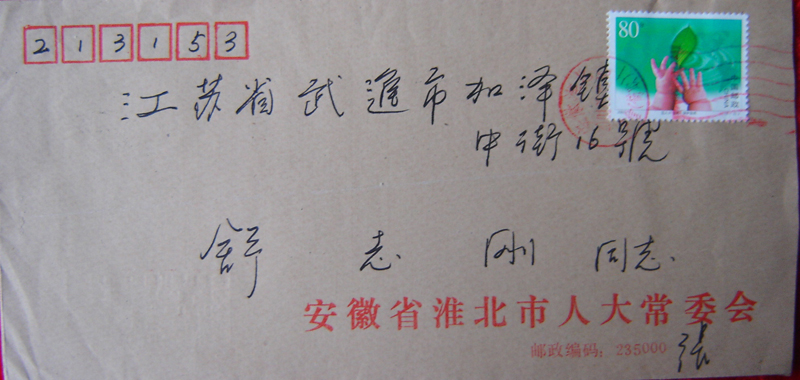 213153
80
江苏省武進市加泽鎮
中街16号
舒志刚 同志.
安徽省淮北市人大常委会
邮政编码: 235000
張